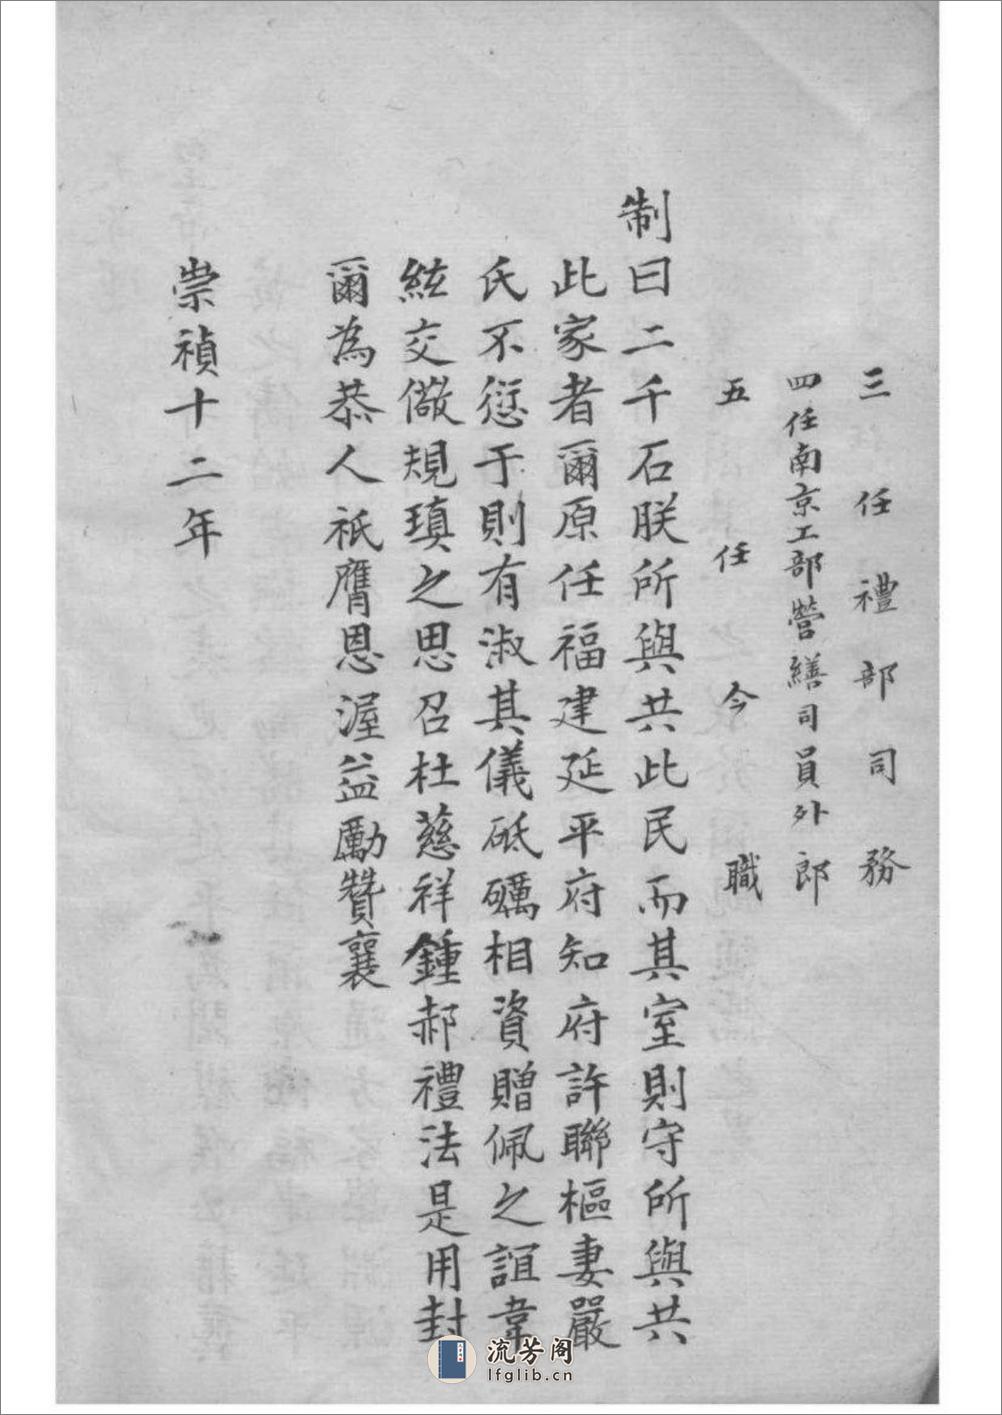 三任禮部司務
四任南京工部營繕司員外郎
五任今職
制曰二千石朕所與共此民而其室則守所與共
此家者爾原任福建延平府知府許聯樞妻嚴
氏不愆于則有淑其儀砥礪相資贈佩之誼韋
絃交儆規瑱之思召杜慈祥鍾郝禮法是用封
爾為恭人祇膺恩渥益勵贊襄
崇禎十二年
流芳阁
lfglib.cn